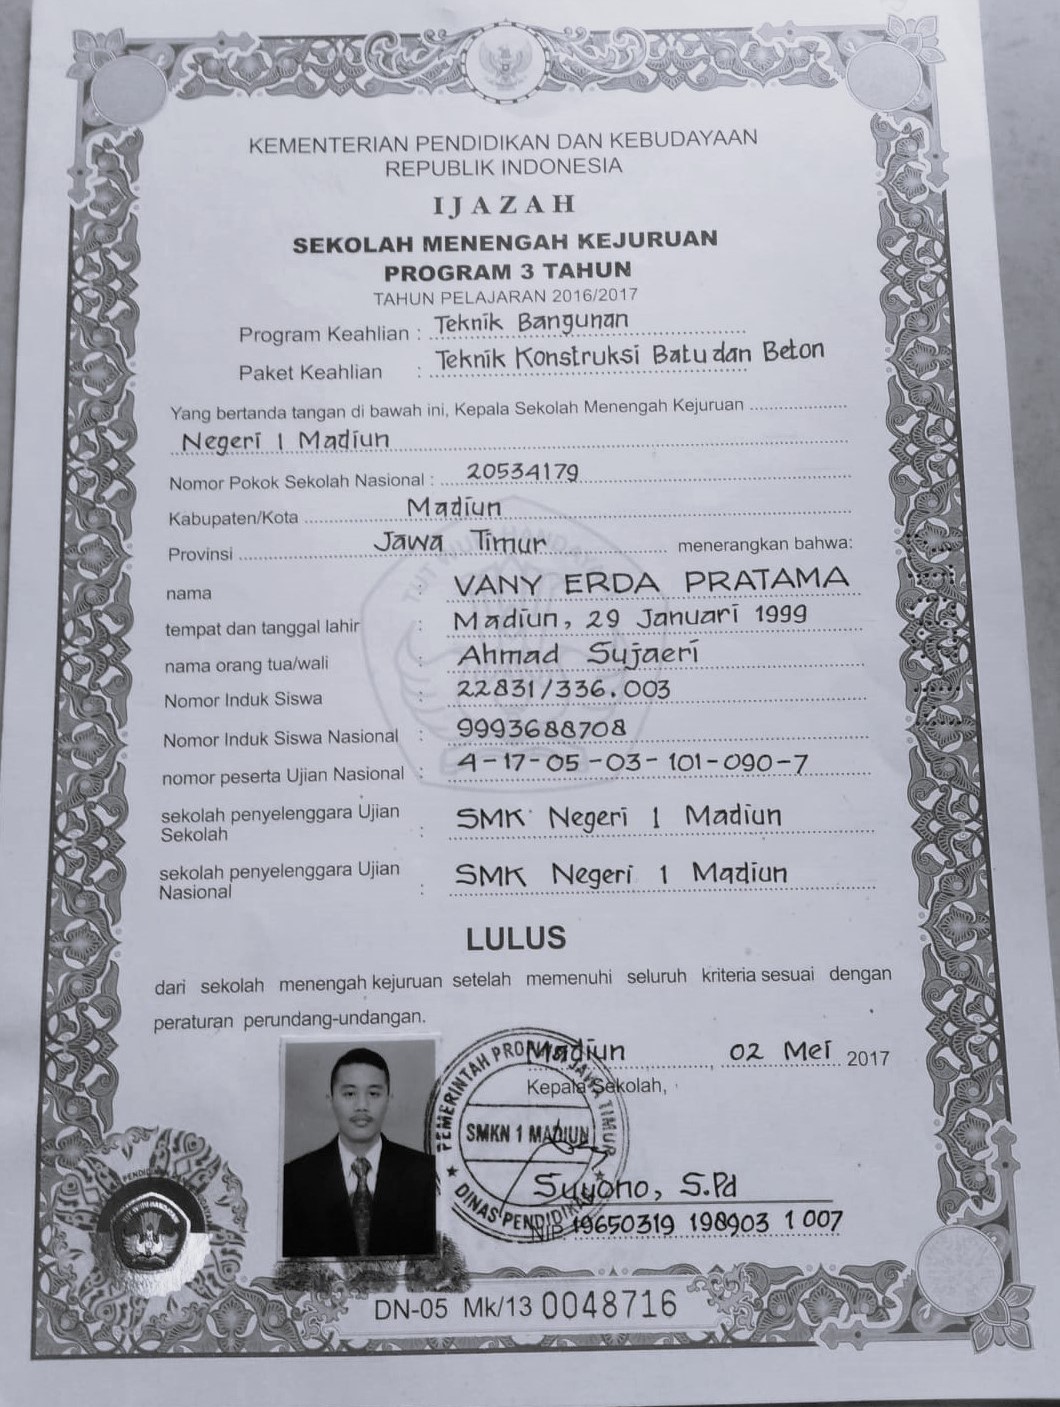 KEMENTERIAN PENDIDIKAN DAN KEBUDAYAAN
REPUBLIK INDONESIA
IJAZAH
SEKOLAH MENENGAH KEJURUAN
PROGRAM 3 TAHUN
TAHUN PELAJARAN 2016/2017
Program Keahlian : Teknik Bangunan
Paket Keahlian : Teknik Konstruksi Batu dan Beton
Yang bertanda tangan di bawah ini, Kepala Sekolah Menengah Kejuruan
Negeri 1 Madiun
Nomor Pokok Sekolah Nasional : 20534179
Kabupaten/Kota Madiun
Provinsi Jawa Timur menerangkan bahwa:
nama : VANY ERDA PRATAMA
tempat dan tanggal lahir : Madiun, 29 Januari 1999
nama orang tua/wali : Ahmad Sujaeri
Nomor Induk Siswa : 22831/336.003
Nomor Induk Siswa Nasional : 9993688708
nomor peserta Ujian Nasional : 4-17-05-03-101-090-7
sekolah penyelenggara Ujian
Sekolah : SMK Negeri 1 Madiun
sekolah penyelenggara Ujian
Nasional : SMK Negeri 1 Madiun
LULUS
dari sekolah menengah kejuruan setelah memenuhi seluruh kriteria sesuai dengan
peraturan perundang-undangan.
Madiun, 02 Mei 2017
Kepala Sekolah,
PEMERINTAH PROVINSI JAWA TIMUR
SMKN 1 MADIUN
DINAS PENDIDIKAN
Suyono, S.Pd
NIP. 19650319 198903 1 007
DN-05 Mk/13 0048716